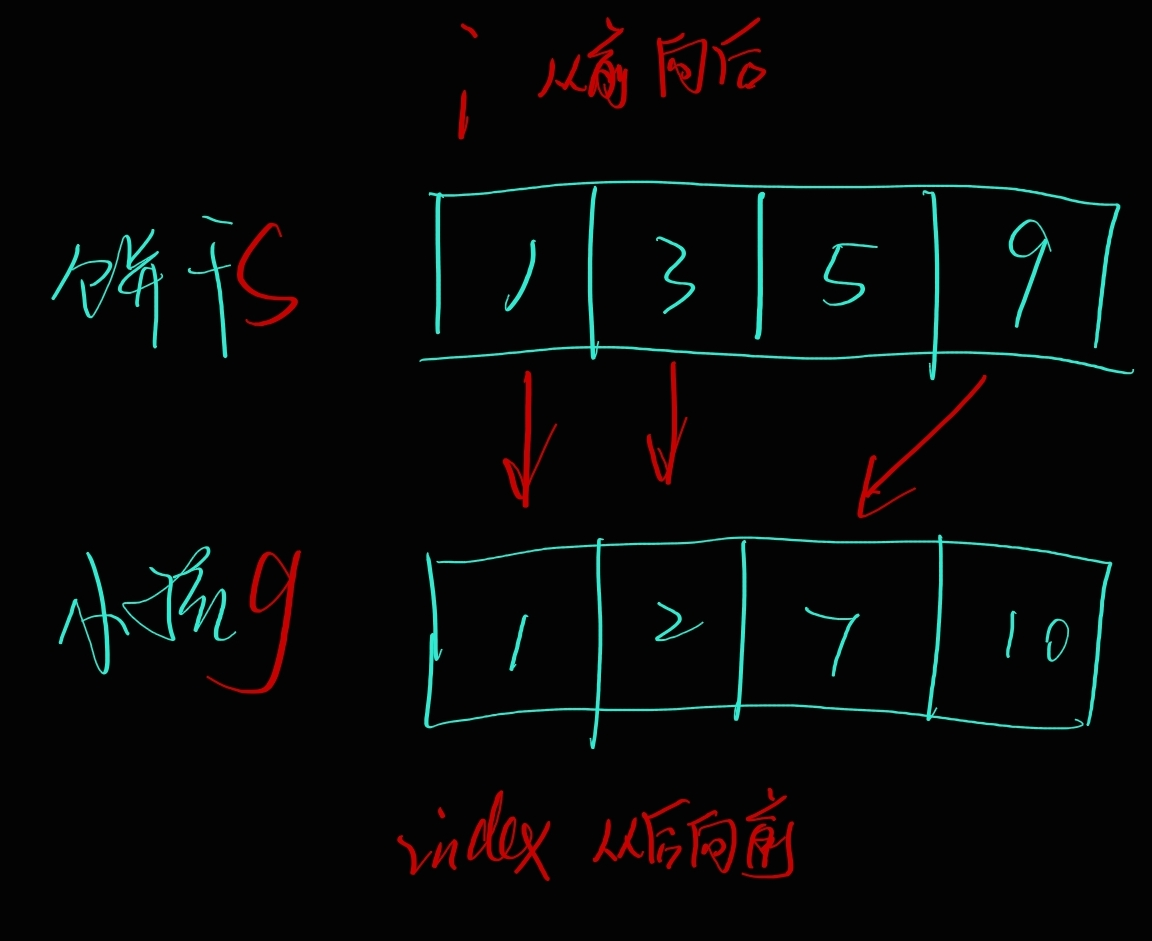 i 从前向后
饼干S 1 3 5 9
小孩g 1 2 7 10
index 从后向前